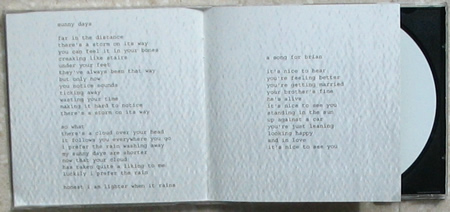 sunny days
far in the distance
there's a storm on its way
you can feel it in your bones
creaking like stairs
under your feet
they've always been that way
but only now
you notice sounds
ticking away
wasting your time
making it hard to notice
there's a storm on its way
so what
there's a cloud over your head
it follows you everywhere you go
i prefer the rain washing away
my sunny days are shorter
now that your cloud
has taken quite a liking to me
luckily i prefer the rain
honest i am lighter when it rains
a song for brian
it's nice to hear
you're feeling better
you're getting married
your brother's fine
he's alive
it's nice to see you
standing in the sun
up against a car
you're just leaning
looking happy
and in love
it's nice to see you